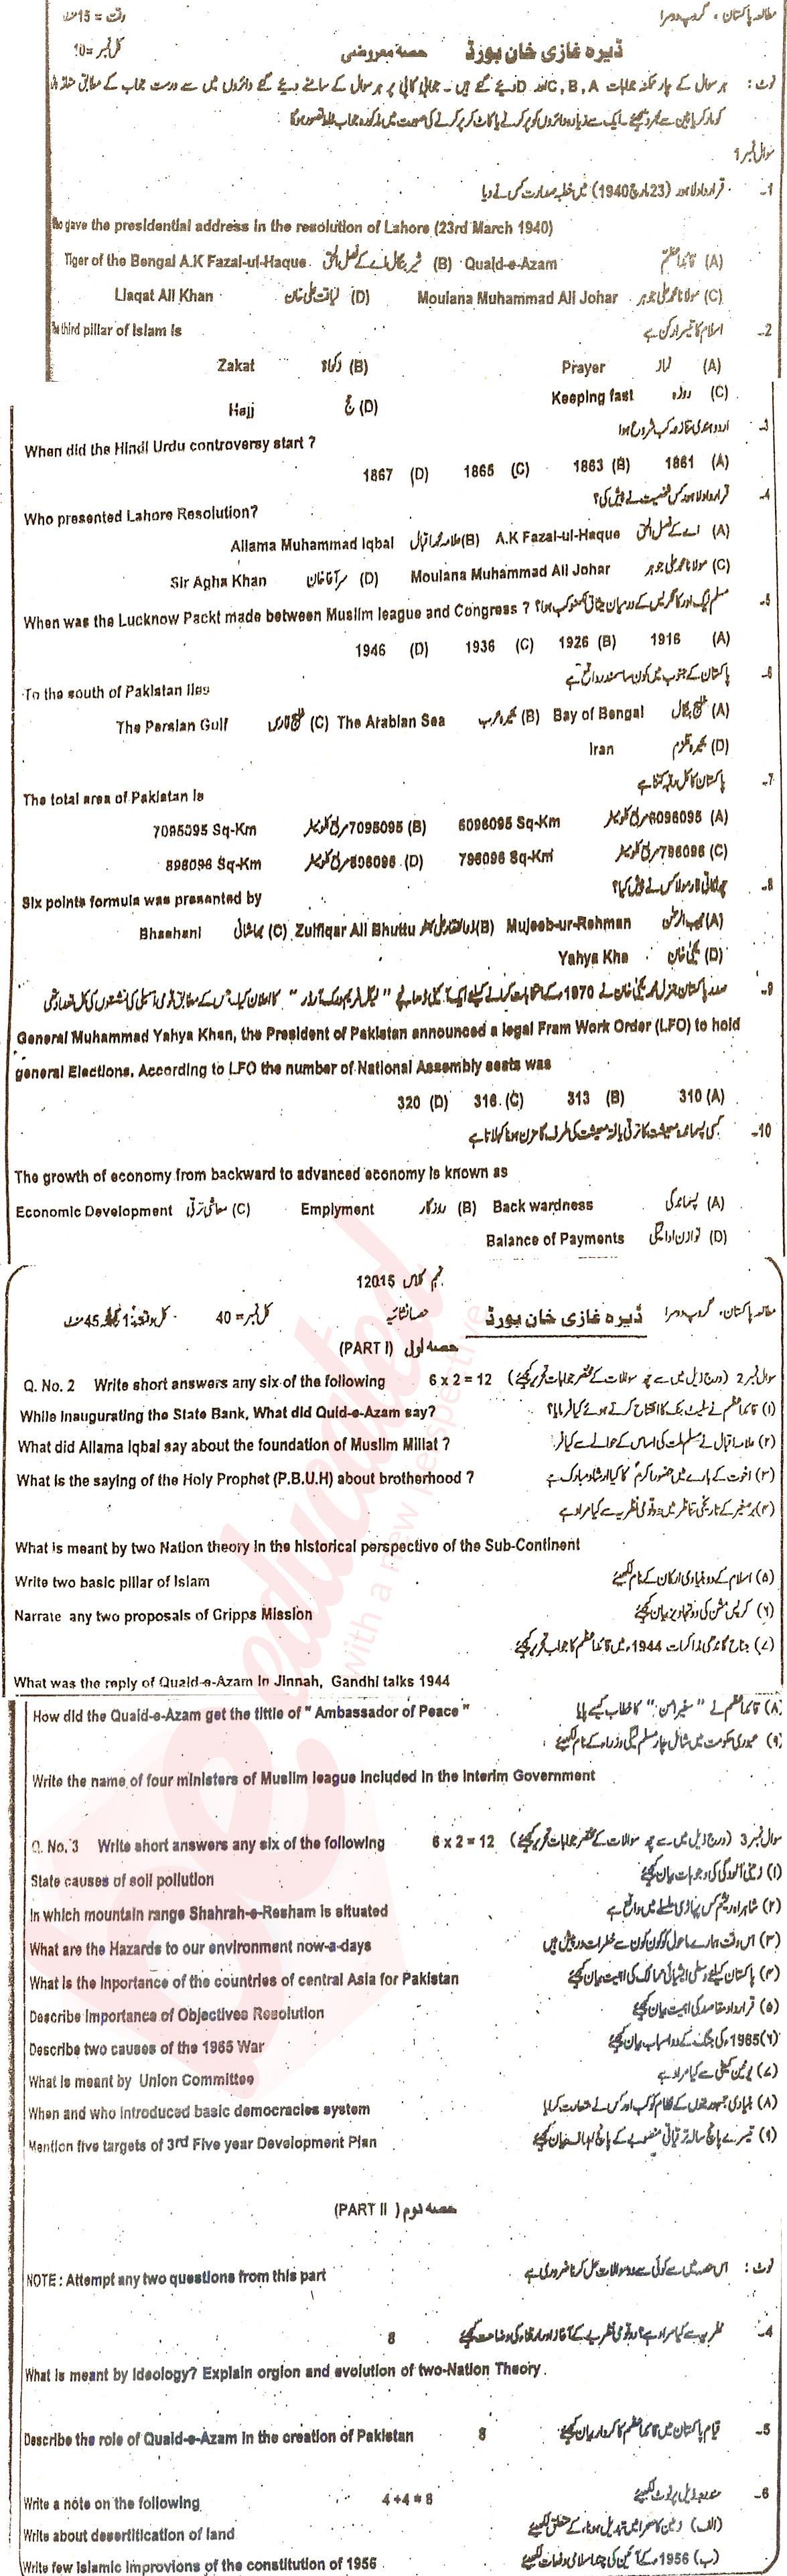 مطالعہ پاکستان، گروپ دوسرا وقت = 15 منٹ
ڈیرہ غازی خان بورڈ حصہ معروضی کل نمبر = 10
سوال نمبر 1
1- قرارداد لاہور (23 مارچ 1940) میں خطبہ صدارت کس نے دیا
gave the presidential address in the resolution of Lahore (23rd March 1940)
(A) قائداعظم Quaid-e-Azam (B) شیر بنگال اے کے فضل الحق Tiger of the Bengal A.K Fazal-ul-Haque
(C) مولانا محمد علی جوہر Moulana Muhammad Ali Johar (D) لیاقت علی خان Liaqat Ali Khan
2- اسلام کا تیسرا رکن ہے
third pillar of Islam is
(A) نماز Prayer (B) زکوٰۃ Zakat
(C) روزہ Keeping fast (D) حج Hajj
3- اردو ہندی تنازعہ کب شروع ہوا
When did the Hindi Urdu controversy start ?
(A) 1861 (B) 1863 (C) 1865 (D) 1867
4- قرارداد لاہور کس شخصیت نے پیش کی؟
Who presented Lahore Resolution?
(A) اے کے فضل الحق A.K Fazal-ul-Haque (B) علامہ محمد اقبال Allama Muhammad Iqbal
(C) مولانا محمد علی جوہر Moulana Muhammad Ali Johar (D) سر آغا خان Sir Agha Khan
5- مسلم لیگ اور کانگریس کے درمیان میثاق لکھنؤ کب ہوا؟
When was the Lucknow Packt made between Muslim league and Congress ?
(A) 1916 (B) 1926 (C) 1936 (D) 1946
6- پاکستان کے جنوب میں کون سا سمندر واقع ہے
To the south of Pakistan lies
(A) خلیج بنگال Bay of Bengal (B) بحیرہ عرب The Arabian Sea (C) خلیج فارس The Persian Gulf
(D) بحیرہ قلزم Iran
7- پاکستان کا کل رقبہ کتنا ہے
The total area of Pakistan is
(A) 6096095 مربع کلومیٹر 6096095 Sq-Km (B) 7095095 مربع کلومیٹر 7095095 Sq-Km
(C) 796096 مربع کلومیٹر 796096 Sq-Km (D) 896096 مربع کلومیٹر 896096 Sq-Km
8- چھ نکاتی فارمولا کس نے پیش کیا؟
Six points formula was presented by
(A) مجیب الرحمن Mujeeb-ur-Rehman (B) ذوالفقار علی بھٹو Zulfiqar Ali Bhuttu (C) بھاشانی Bhashani
(D) یحییٰ خان Yahya Kha
9-
General Muhammad Yahya Khan, the President of Pakistan announced a legal Fram Work Order (LFO) to hold
general Elections. According to LFO the number of National Assembly seats was
(A) 310 (B) 313 (C) 316 (D) 320
10- کسی پسماندہ معیشت کا ترقی یافتہ معیشت کی طرف گامزن ہونا کہلاتا ہے
The growth of economy from backward to advanced economy is known as
(A) پسماندگی Back wardness (B) روزگار Emplyment (C) معاشی ترقی Economic Development
(D) توازن ادائیگی Balance of Payments
12015
مطالعہ پاکستان، گروپ دوسرا ڈیرہ غازی خان بورڈ حصہ انشائیہ کل نمبر = 40
حصہ اول (PART I)
Q. No. 2 Write short answers any six of the following 6 x 2 = 12 سوال نمبر 2 (درج ذیل میں سے چھ سوالات کے مختصر جوابات تحریر کیجئے)
While Inaugurating the State Bank, What did Quid-e-Azam say? (۱) قائداعظم نے سٹیٹ بنک کا افتتاح کرتے ہوئے کیا فرمایا؟
What did Allama Iqbal say about the foundation of Muslim Millat ? (۲) علامہ اقبال نے مسلم ملت کی اساس کے حوالے سے کیا فر
What is the saying of the Holy Prophet (P.B.U.H) about brotherhood ? (۳) اخوت کے بارے میں حضور اکرم کا کیا ارشاد مبارک ہے
(۴) برصغیر کے تاریخی تناظر میں دو قومی نظریہ سے کیا مراد ہے
What is meant by two Nation theory in the historical perspective of the Sub-Continent
Write two basic pillar of Islam (۵) اسلام کے دو بنیادی ارکان کے نام لکھیے
Narrate any two proposals of Gripps Mission (۶) کرپس مشن کی دو تجاویز بیان کیجئے
(۷) جناح گاندھی مذاکرات 1944ء میں قائداعظم کا جواب تحریر کیجئے
What was the reply of Quaid-e-Azam in Jinnah, Gandhi talks 1944
How did the Quaid-e-Azam get the tittle of " Ambassador of Peace " (۸) قائداعظم نے "سفیر امن" کا خطاب کیسے پایا
(۹) عبوری حکومت میں شامل چار مسلم لیگی وزراء کے نام لکھیے
Write the name of four ministers of Muslim league included in the Interim Government
Q. No. 3 Write short answers any six of the following 6 x 2 = 12 سوال نمبر 3 (درج ذیل میں سے چھ سوالات کے مختصر جوابات تحریر کیجئے)
State causes of soil pollution (۱) زمینی آلودگی کی وجوہات بیان کیجئے
In which mountain range Shahrah-e-Resham is situated (۲) شاہراہ ریشم کس پہاڑی سلسلے میں واقع ہے
What are the Hazards to our environment now-a-days (۳) اس وقت ہمارے ماحول کو کون کون سے خطرات درپیش ہیں
What is the Inportance of the countries of central Asia for Pakistan (۴) پاکستان کیلئے وسطی ایشیائی ممالک کی اہمیت بیان کیجئے
Describe Importance of Objectives Resolution (۵) قرارداد مقاصد کی اہمیت بیان کیجئے
Describe two causes of the 1965 War (۶) 1965ء کی جنگ کے دو اسباب بیان کیجئے
What is meant by Union Committee (۷) یونین کمیٹی سے کیا مراد ہے
When and who introduced basic democracies system (۸) بنیادی جمہوریتوں کے نظام کو کب اور کس نے متعارف کرایا
Mention five targets of 3rd Five year Development Plan (۹) تیسرے پانچ سالہ ترقیاتی منصوبے کے پانچ اہداف بیان کیجئے
حصہ دوم (PART II)
NOTE : Attempt any two questions from this part نوٹ : اس حصہ میں سے کوئی سے دو سوالات حل کرنا ضروری ہے
4- نظریہ سے کیا مراد ہے؟ دو قومی نظریے کے آغاز اور ارتقاء کی وضاحت کیجئے 8
What is meant by Ideology? Explain orgion and evolution of two-Nation Theory.
Describe the role of Quaid-e-Azam in the creation of Pakistan 8 5- قیام پاکستان میں قائداعظم کا کردار بیان کیجئے
Write a note on the following 4+4=8 6- مندرجہ ذیل پر نوٹ لکھیے
Write about desertitication of land (الف) زمین کا صحرا میں تبدیل ہونا، کے متعلق لکھیے
Write few Islamic Improvions of the constitution of 1956 (ب) 1956ء کے آئین کی چند اسلامی دفعات لکھیے
beeducated
with a new perspective